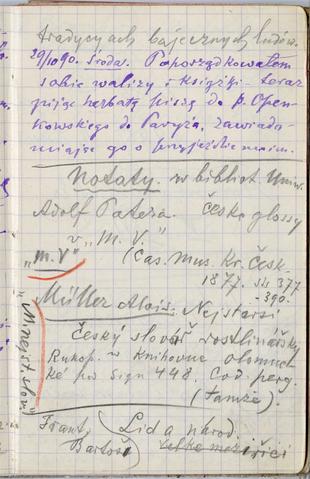 tradycyach bajecznych ludów.
29/10 90. Środa. Poporządkowałem
sobie walizy i książki - teraz
pijąc herbatę piszę do p. Open-
kowskiego do Paryża, zawiado-
miając go o przyjeździe moim.
Notaty. w bibliot. Uniw.
Adolf Patera. České glossy
v „M. V."
„M. V"
(Čas. Mus. Kr. Česk.
1877. str 377
-390.
Müller Alois. Nejstarší
Český slovář rostlinářský
Rukop. w Knihovne olomuc-
ké po sign 448. Cod. perg.
(Tamże).
„M. nejst. slov"
Frant. Bartoš
(Lid a národ.
Velké Meziříčí